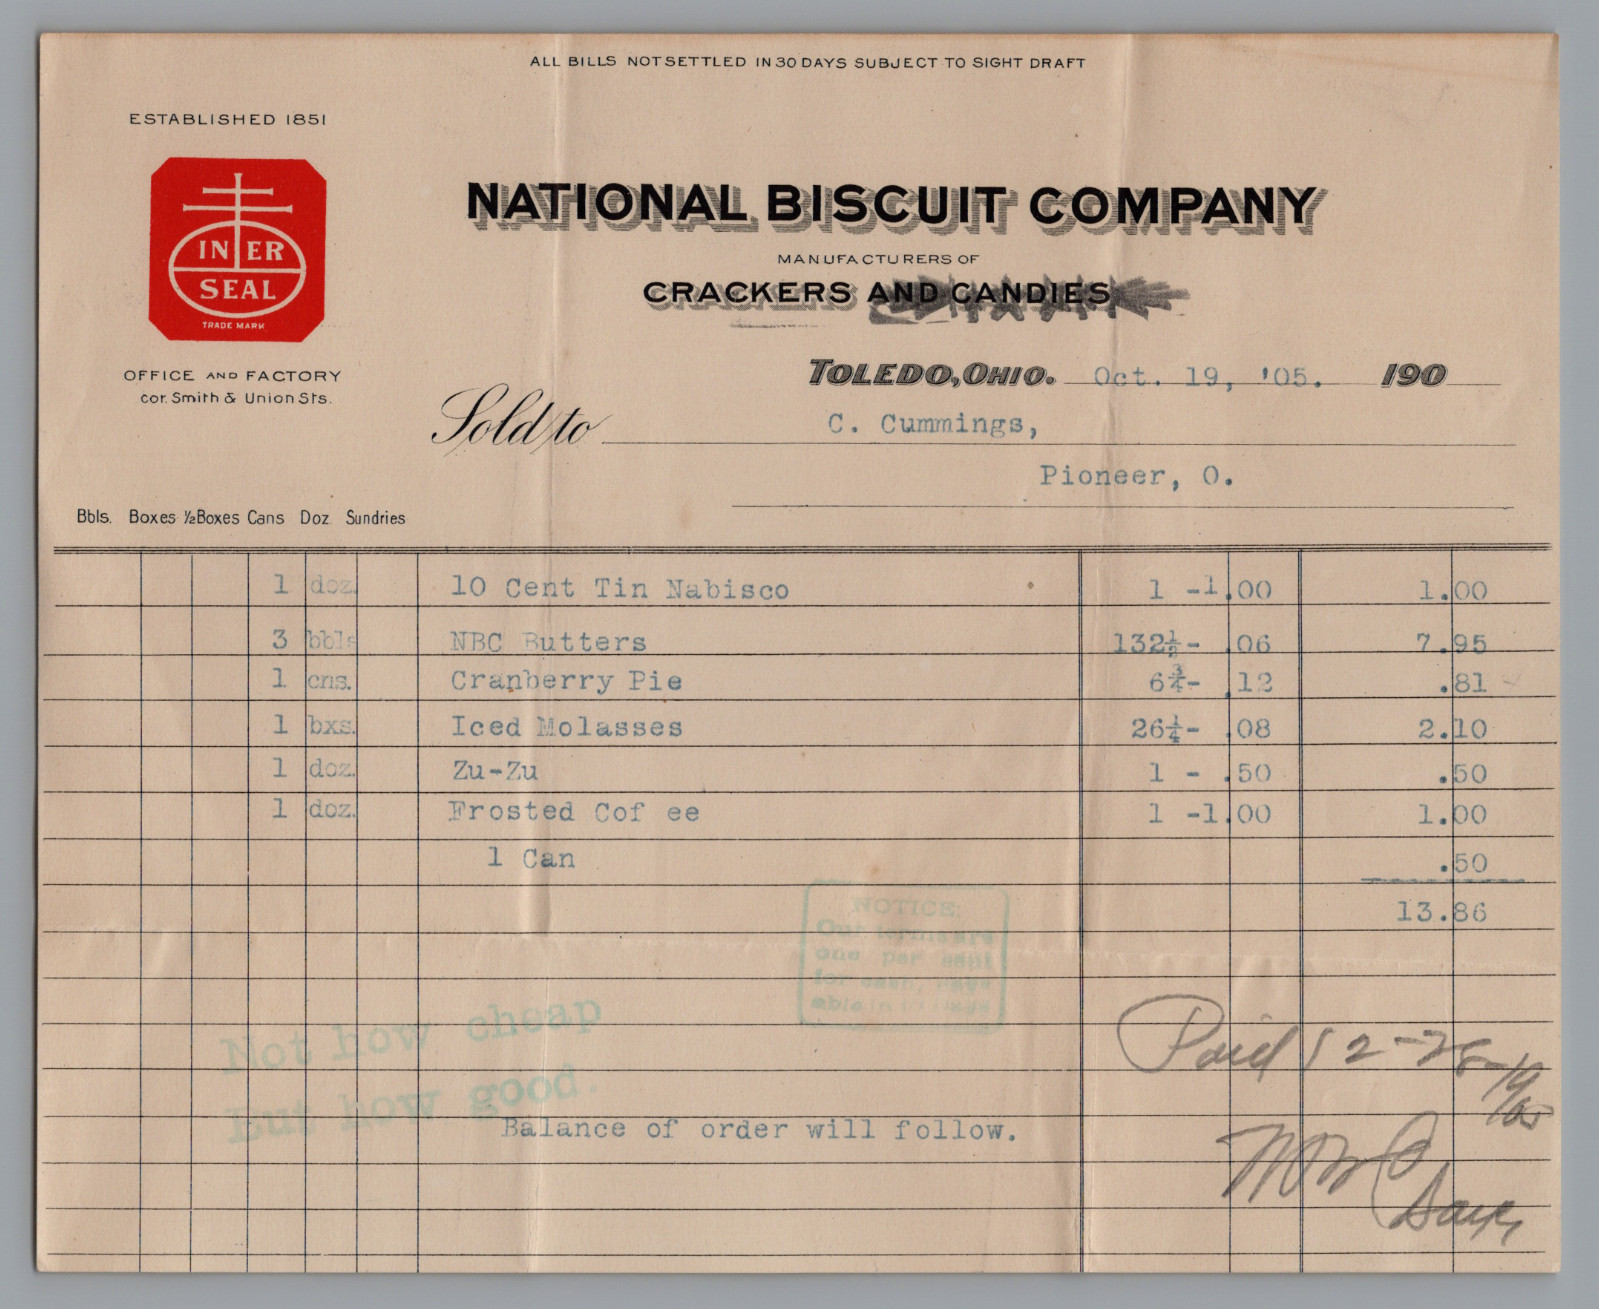 ALL BILLS NOT SETTLED IN 30 DAYS SUBJECT TO SIGHT DRAFT
ESTABLISHED 1851
INER SEAL
TRADE MARK
NATIONAL BISCUIT COMPANY
MANUFACTURERS OF
CRACKERS AND CANDIES
OFFICE AND FACTORY
cor. Smith & Union Sts.
TOLEDO, OHIO. Oct. 19, '05. 190
Sold to C. Cummings,
Pioneer, O.
Bbls. Boxes ½Boxes Cans Doz. Sundries
1 doz. 10 Cent Tin Nabisco 1 -1.00 1.00
3 bbls NBC Butters 132½- .06 7.95
1 cns. Cranberry Pie 6¾- .12 .81
1 bxs. Iced Molasses 26¼- .08 2.10
1 doz. Zu-Zu 1 - .50 .50
1 doz. Frosted Cof ee 1 -1.00 1.00
1 Can .50
13.86
NOTICE:
Our terms are
one per cent
for cash,
able in
Not how cheap
But how good.
Paid 12-28-
Balance of order will follow.